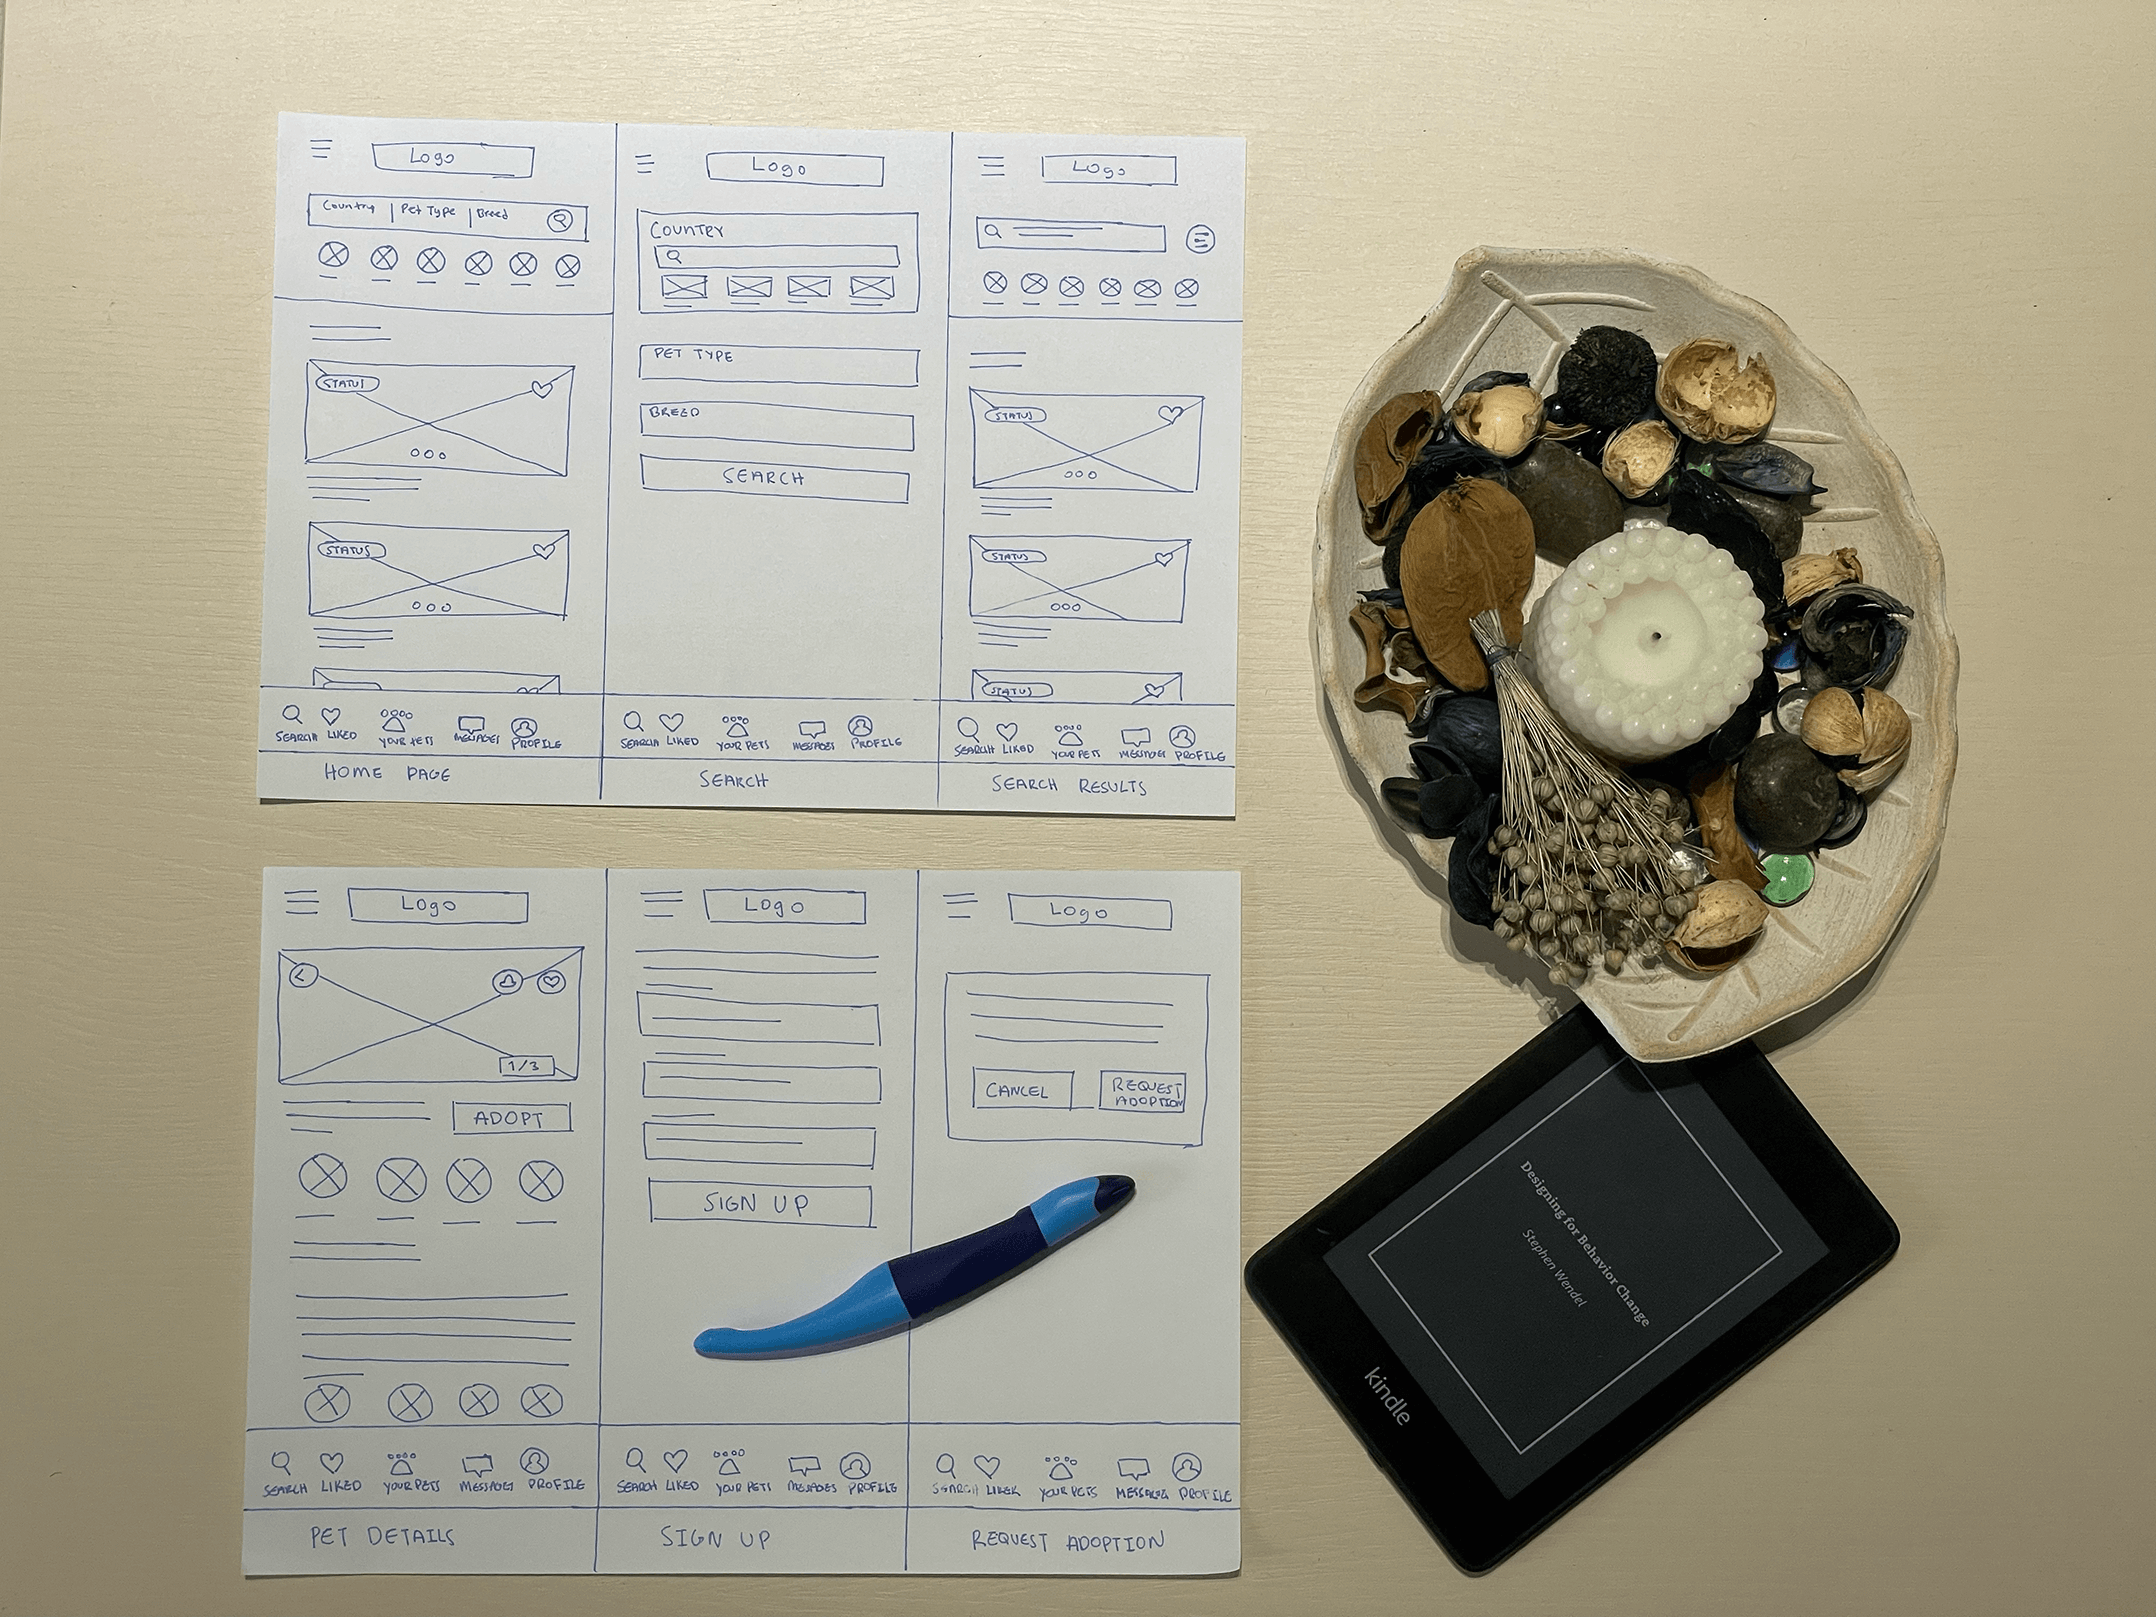 Logo
Country | Pet Type | Breed
STATUS
STATUS
SEARCH LIKED YOUR PETS MESSAGES PROFILE
HOME PAGE
Logo
COUNTRY
PET TYPE
BREED
SEARCH
SEARCH LIKED YOUR PETS MESSAGES PROFILE
SEARCH
Logo
STATUS
STATUS
STATUS
SEARCH LIKED YOUR PETS MESSAGES PROFILE
SEARCH RESULTS
Logo
1/3
ADOPT
SEARCH LIKED YOUR PETS MESSAGES PROFILE
PET DETAILS
Logo
SIGN UP
SEARCH LIKED YOUR PETS MESSAGES PROFILE
SIGN UP
Logo
CANCEL
REQUEST
ADOPTION
SEARCH LIKEK YOUR PETS MESSAGES PROFILE
REQUEST ADOPTION
Designing for Behavior Change
Stephen Wendel
kindle